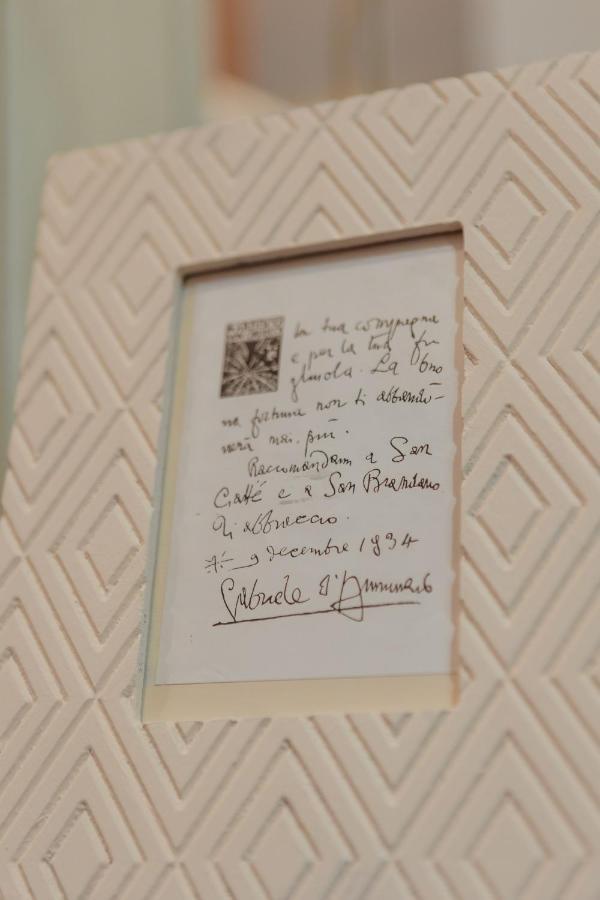 la tua compagna
e per la tua fi
gliuola. La buo
na fortuna non ti abbando-
nerà mai più.
Raccomandami a San
Ciatté e a San Brandano
Ti abbraccio.
9 decembre 1934
Gabriele d'Annunzio